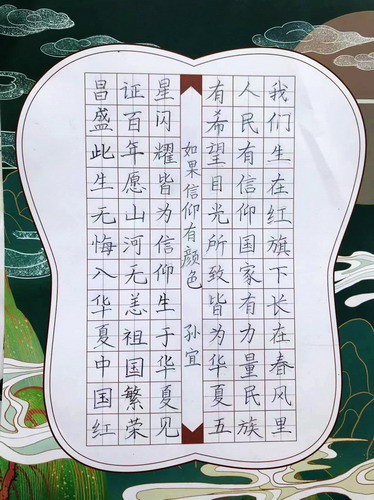 我们生在红旗下长在春风里
人民有信仰国家有力量民族
有希望目光所致皆为华夏五
如果信仰有颜色 孙宜
星闪耀皆为信仰生于华夏见
证百年愿山河无恙祖国繁荣
昌盛此生无悔入华夏中国红